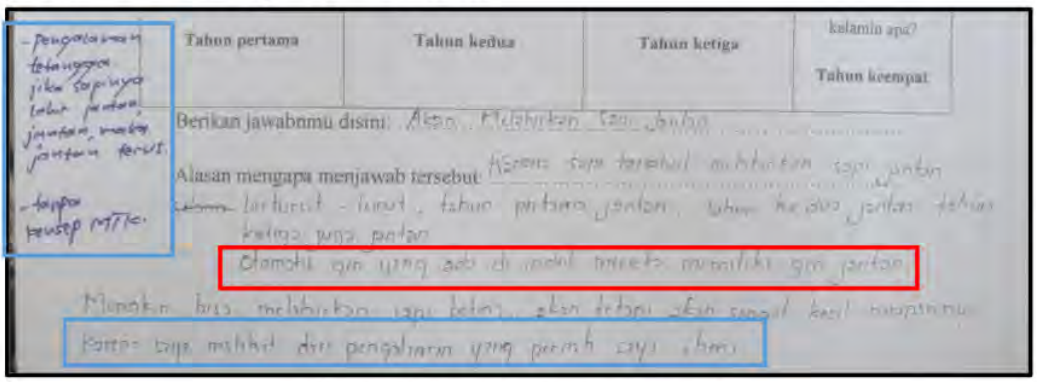 - pengalaman
tetangga
jika sapinya
lahir jantan,
jantan, maka
jantan terus.
- tanpa
konsep MTK.
Tahun pertama
Tahun kedua
Tahun ketiga
kelamin apa?
Tahun keempat
Berikan jawabnmu disini: Akan Melahirkan sapi jantan
Alasan mengapa menjawab tersebut: Karena sapi tersebut melahirkan sapi jantan
berturut - turut, tahun pertama jantan, tahun kedua jantan tahun
ketiga juga jantan
Otomatis gen yang ada di induk mereka memiliki gen jantan
Mungkin bisa melahirkan sapi betina, akan tetapi akan sangat kecil
Karena saya melihat dari pengalaman yang pernah saya